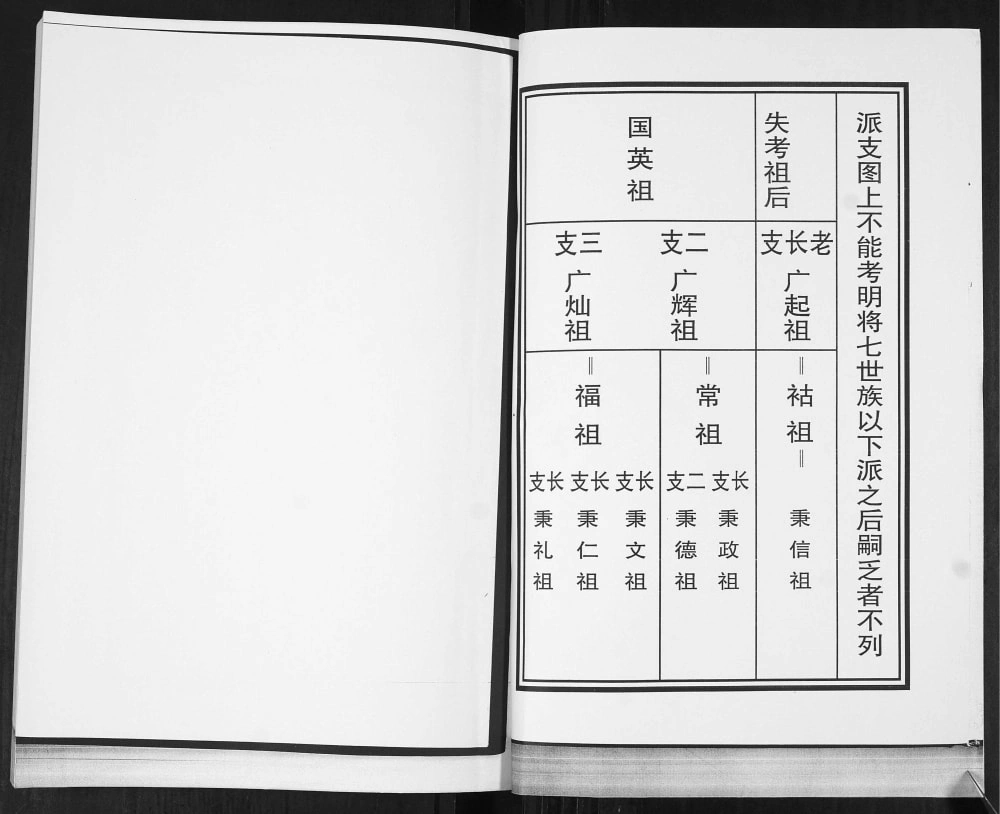 派支图上不能考明将七世族以下派之后嗣乏者不列
失考祖后
老长支
广起祖
祜祖
秉信祖
国英祖
二支
广辉祖
常祖
长支
秉政祖
二支
秉德祖
三支
广灿祖
福祖
长支
秉文祖
长支
秉仁祖
长支
秉礼祖